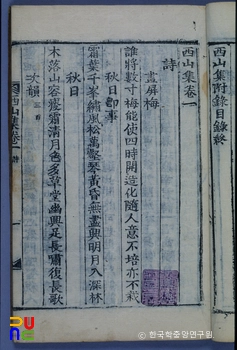 西山集附錄目錄終
西山集卷一
詩
畫屏梅
誰將數寸梅能使四時開造化隨人意不培亦不栽
秋日即事
霜葉千峯繡風松萬壑琴黃昏無盡興明月入深林
秋日
木落山容瘦霜清月色多草堂幽興足長嘯復長歌
次韻
西山集卷一
詩
한국학중앙연구원